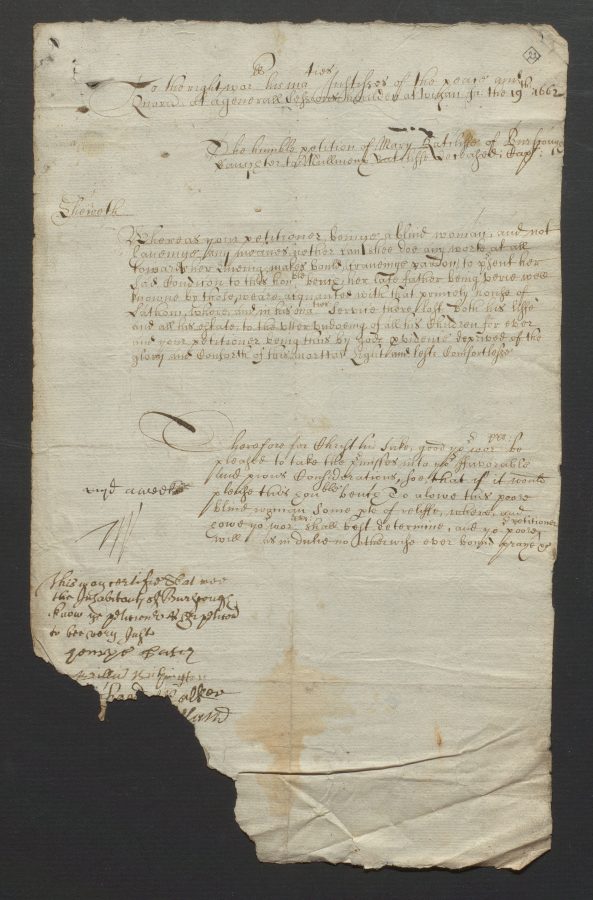 23
To the right wor:pps his maties Justices of the peace and
Quorū: at a generall Sessions houlden at Wigan Ja: the 19th 1662
The humble petition of Mary Ratcliffe of Burscouge
daughter to Ratcliffe deceased:
Sheweth
Whereas your petitioner beinge a blind woman, and not
haveinge any meanes nether can shee doe any worke at all
towards her liveing, makes bould craveinge pardon, to psent her
sad Condition to this honble bench: her late father being verie well
knowne by those weare aquanted with that princely house of
Lathom, where, and in his maties Service there lost both his liffe
and all his estate, to the utter undoeing of all his Children for ever
and your petitioner being thus by gods pvidence deprived of the
glory and Comforth of this mortall Light and left Comfortlesse
Therefore for Christ his sake, good yor worpps be
pleased to take the pmisses into yor ffavorable
and pious Considerations, soe that if it would
please this honble bench To alowe this poore
blind woman some ple of reliffe, where, and
howe yor worpps shall best determine, and yor poore petitioner
will as in dutie no otherwise ever bound praye &c
viijd a weeke
This may certifie that wee
the Inhabitants of Burscough
know ye petitioner & her petition
to bee very Just
George